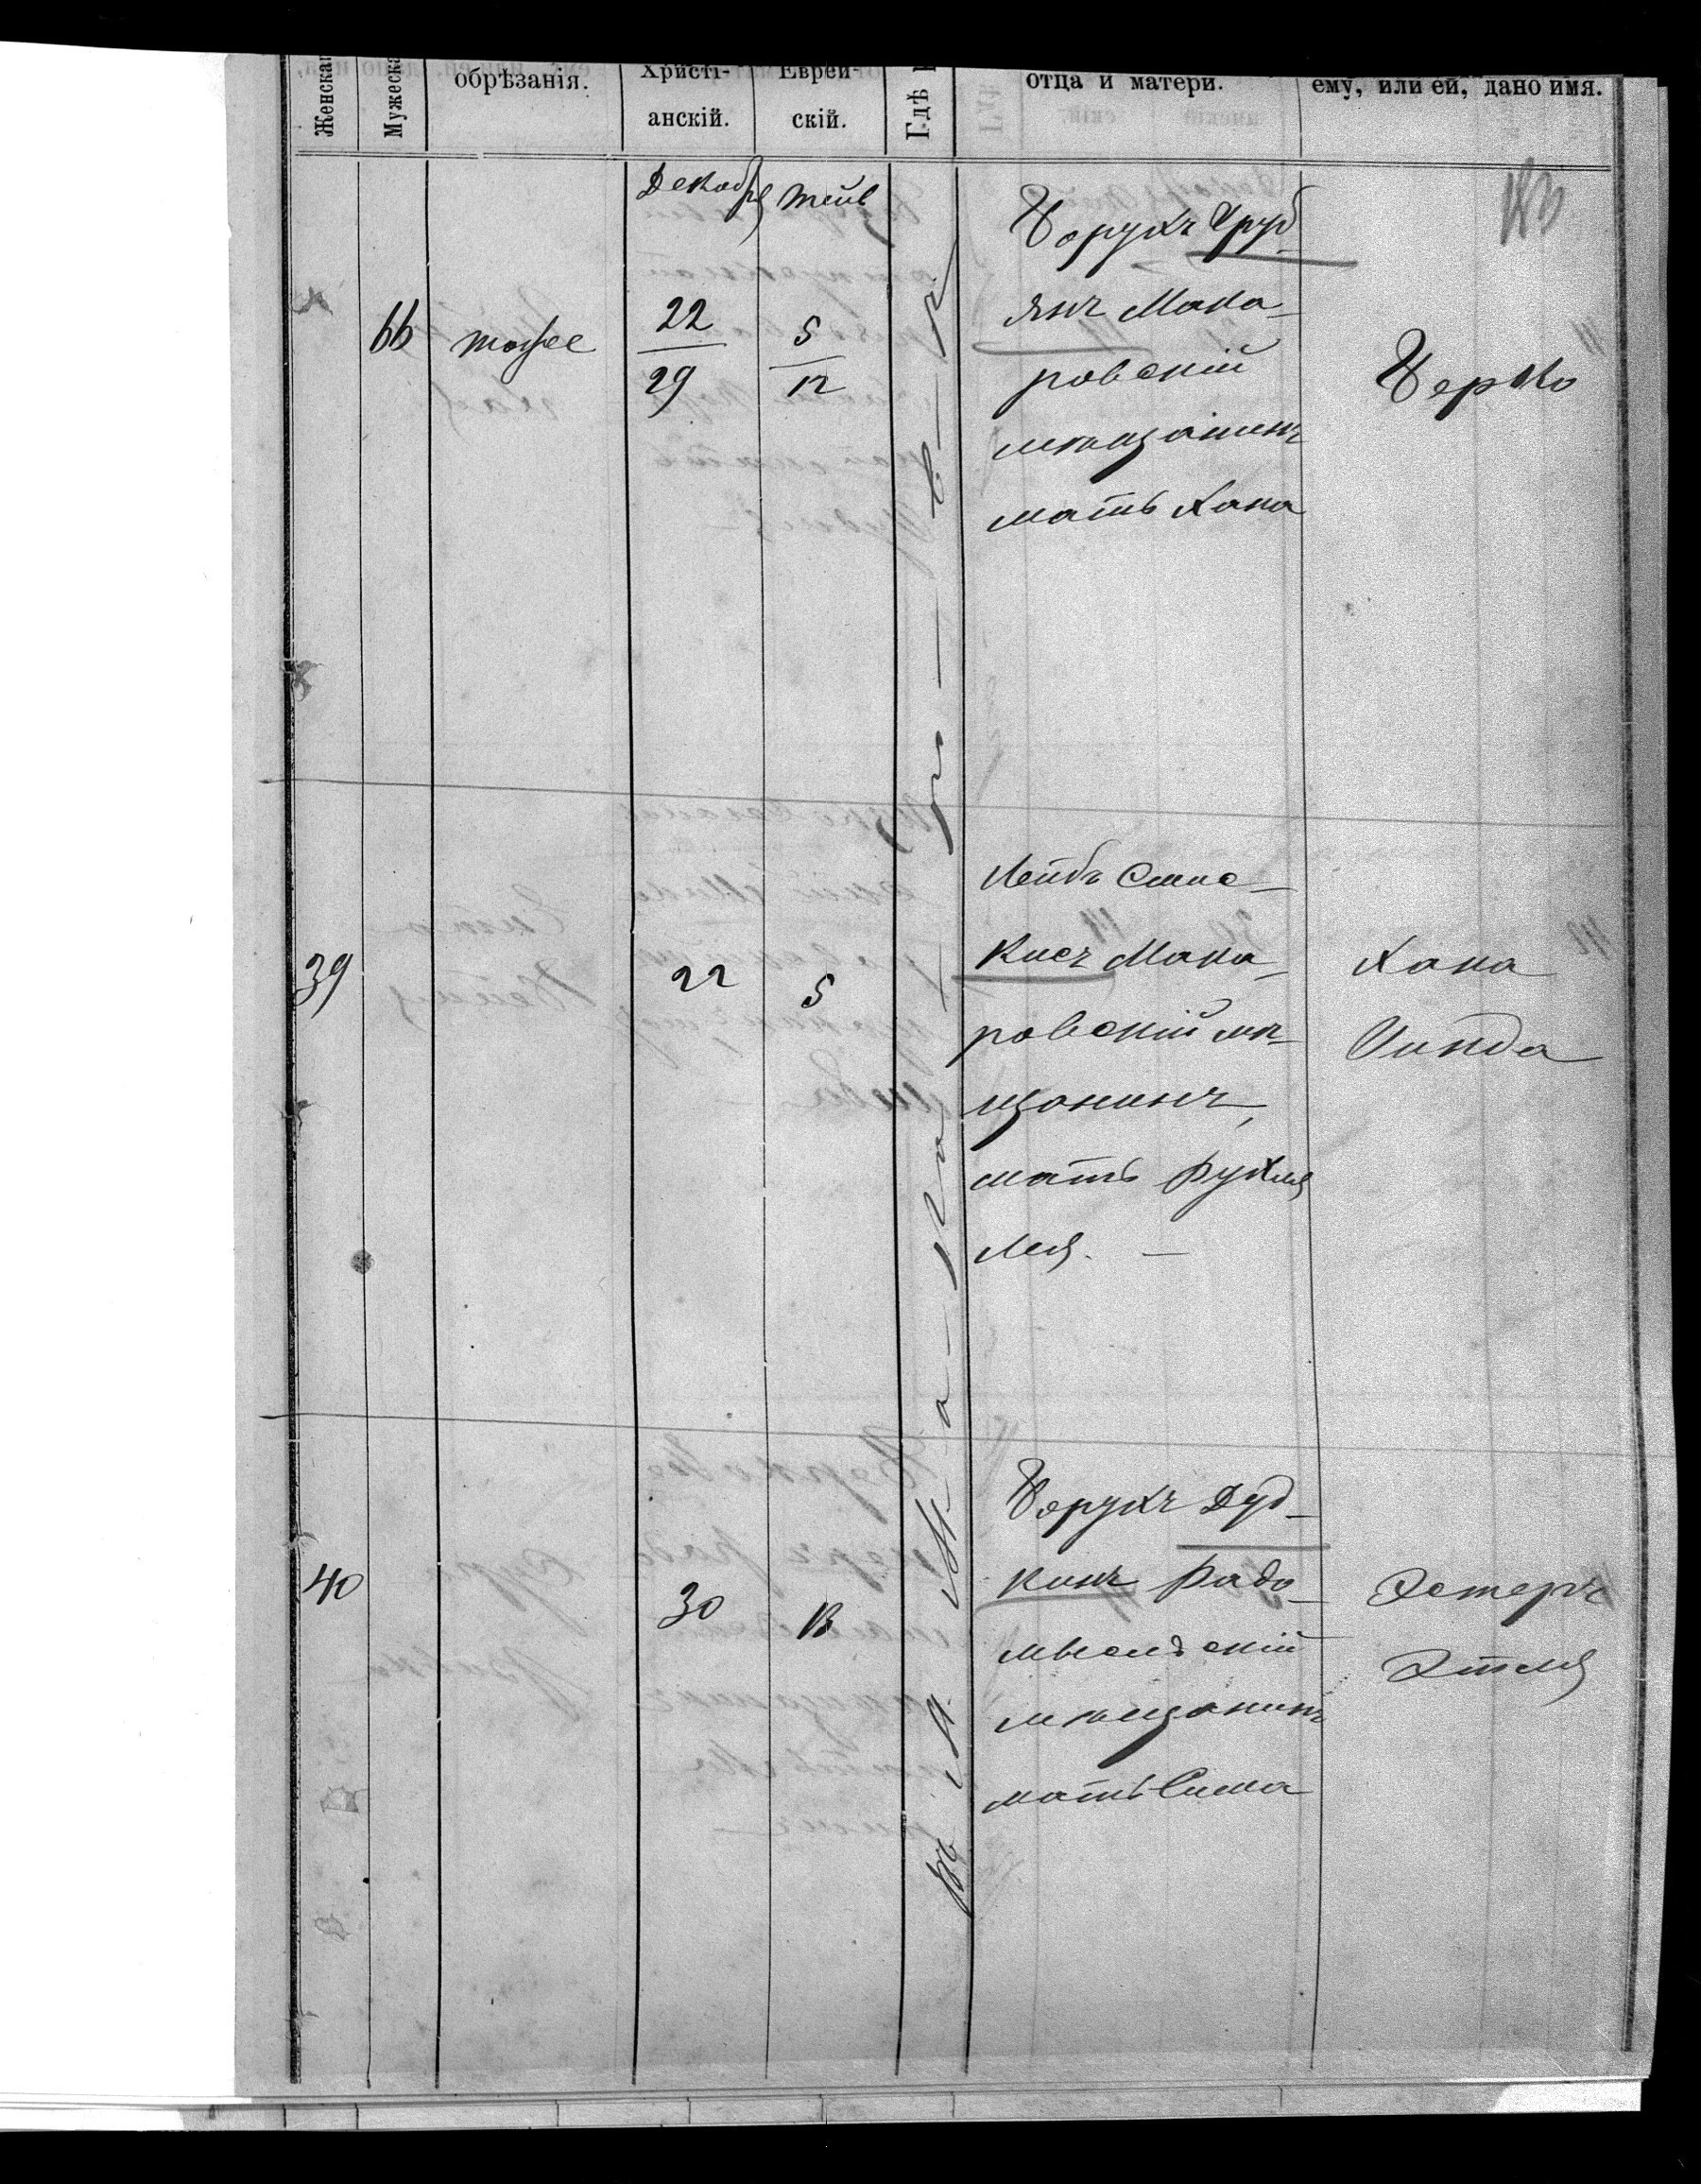 Женская
Мужеска
обрѣзанія.
Христі-
анскій.
Еврей-
скій.
Гдѣ
отца и матери.
ему, или ей, дано имя.
Декабря
Тейв
66
тоже
22
29
5
12
Борухъ Груб
янъ Мака-
ровскій
мѣщанинъ
мать Хана
Берко
39
22
5
Лейбъ Спис-
Мака-
ровскій мѣ-
щанинъ,
мать Рухля
Лея. —
Хана
Винда
40
30
13
Борухъ Дуд-
кинъ Радо-
мысльскій
мѣщанинъ
мать Сима
Эстеръ
Этля
въ м. Ма-ка-ро-в-ѣ